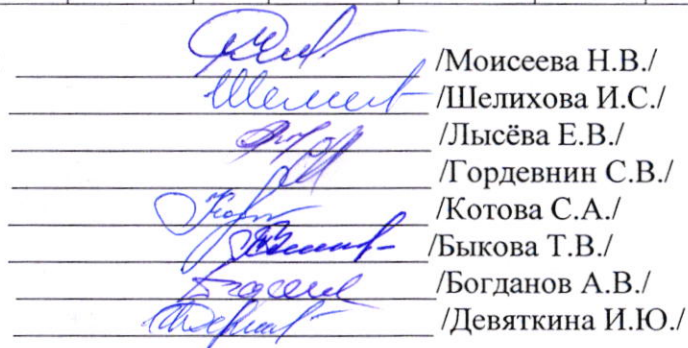 /Моисеева Н.В./
/Шелихова И.С./
/Лысёва Е.В./
/Гордевнин С.В./
/Котова С.А./
/Быкова Т.В./
/Богданов А.В./
/Девяткина И.Ю./